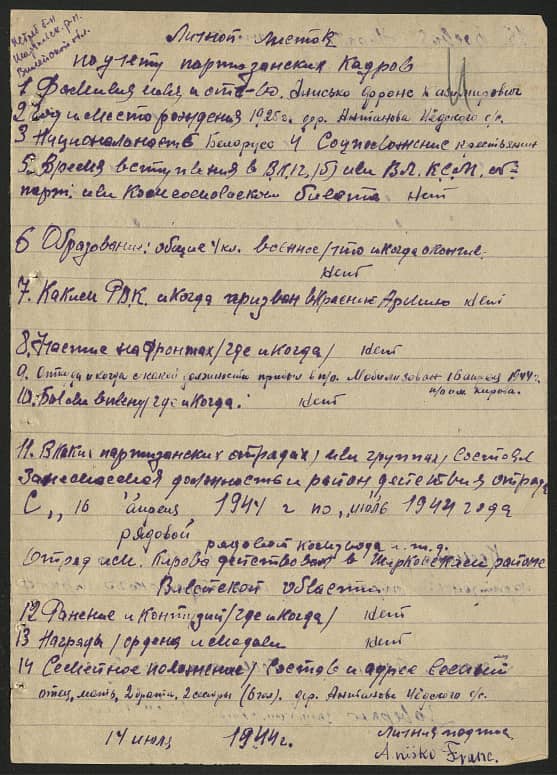 Личной Листок
по учету партизанских Кадров
1 Фамилия имя и отч-во. Анисько Франс Казимирович
2 Год и место рождения 1925г. дер. Антипова Уд­ского с/с.
3 Национальность Белорус 4 Соцположение крестьянин
5. Время вступления в В.К.П.(б) или ВЛ.К.С.М.
парт. или Комсомольского билета Нет
6 Образование: общие 4 кл. военное /что и когда окончил
Нет
7. Каким Р.В.К. и когда призван в Красную Армию Нет
8. Участие на фронтах /где и когда/ Нет
9. Откуда и когда с какой должности прибыл в п/о. Мобилизован 16 апреля 1944г.
п/о им. Кирова.
10. Был ли в плену /где и когда. Нет
11. В каких партизанских отрядах, или группах, состоял
Занимаемая должность и район действия отряда
С „ 16 "апреля 1944 г по „июль 1944 года
рядовой
рядовой комзвода и. т. д.
Отряд им. Кирова действовал в районе
области
12 Ранение и контузий /где и когда/ Нет
13 Награды /ордена и медали Нет
14 Семейное положение/ состав и адрес семьи
отец, мать, 2 брата, 2 сестры (6 чел). дер. Антипова с/с.
14 июля 1944г.
Личная подпись
Aniśko Franc.